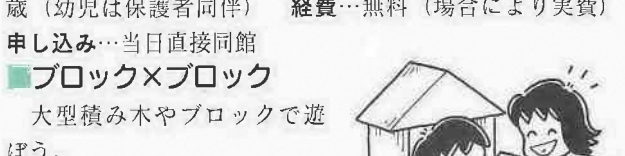 歳（幼児は保護者同伴）　経費…無料（場合により実費）
申し込み…当日直接同館
■ブロック×ブロック
　大型積み木やブロックで遊
ぼう。